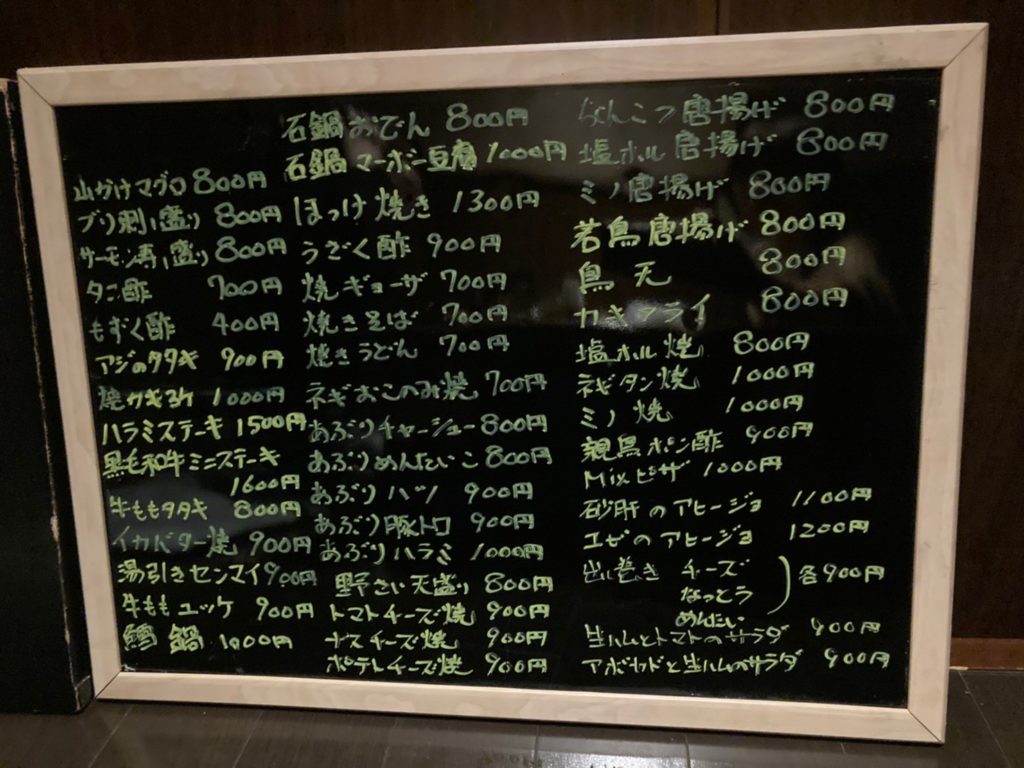 山かけマグロ 800円
ブリ刺し盛り 800円
サーモン刺し盛り 800円
タコ酢 700円
もずく酢 400円
アジのタタキ 900円
焼カキ3ケ 1000円
ハラミステーキ 1500円
黒毛和牛ミニステーキ
1600円
牛ももタタキ 800円
イカバター焼 900円
湯引きセンマイ 900円
牛ももユッケ 900円
鱈鍋 1000円
石鍋おでん 800円
石鍋マーボー豆腐 1000円
ほっけ焼き 1300円
うざく酢 900円
焼ギョーザ 700円
焼きそば 700円
焼きうどん 700円
ネギおこのみ焼 700円
あぶりチャーシュー 800円
あぶりめんたいこ 800円
あぶりハツ 900円
あぶり豚トロ 900円
あぶりハラミ 1000円
野さい天盛り 800円
トマトチーズ焼 900円
ナスチーズ焼 900円
ポテトチーズ焼 900円
なんこつ唐揚げ 800円
塩ホル唐揚げ 800円
ミノ唐揚げ 800円
若鳥唐揚げ 800円
鳥天 800円
カキフライ 800円
塩ホル焼 800円
ネギタン焼 1000円
ミノ焼 1000円
親鳥ポン酢 900円
Mixピザ 1000円
砂肝のアヒージョ 1100円
エビのアヒージョ 1200円
出し巻き チーズ
なっとう 各900円
めんたい
生ハムとトマトのサラダ 900円
アボカドと生ハムのサラダ 900円